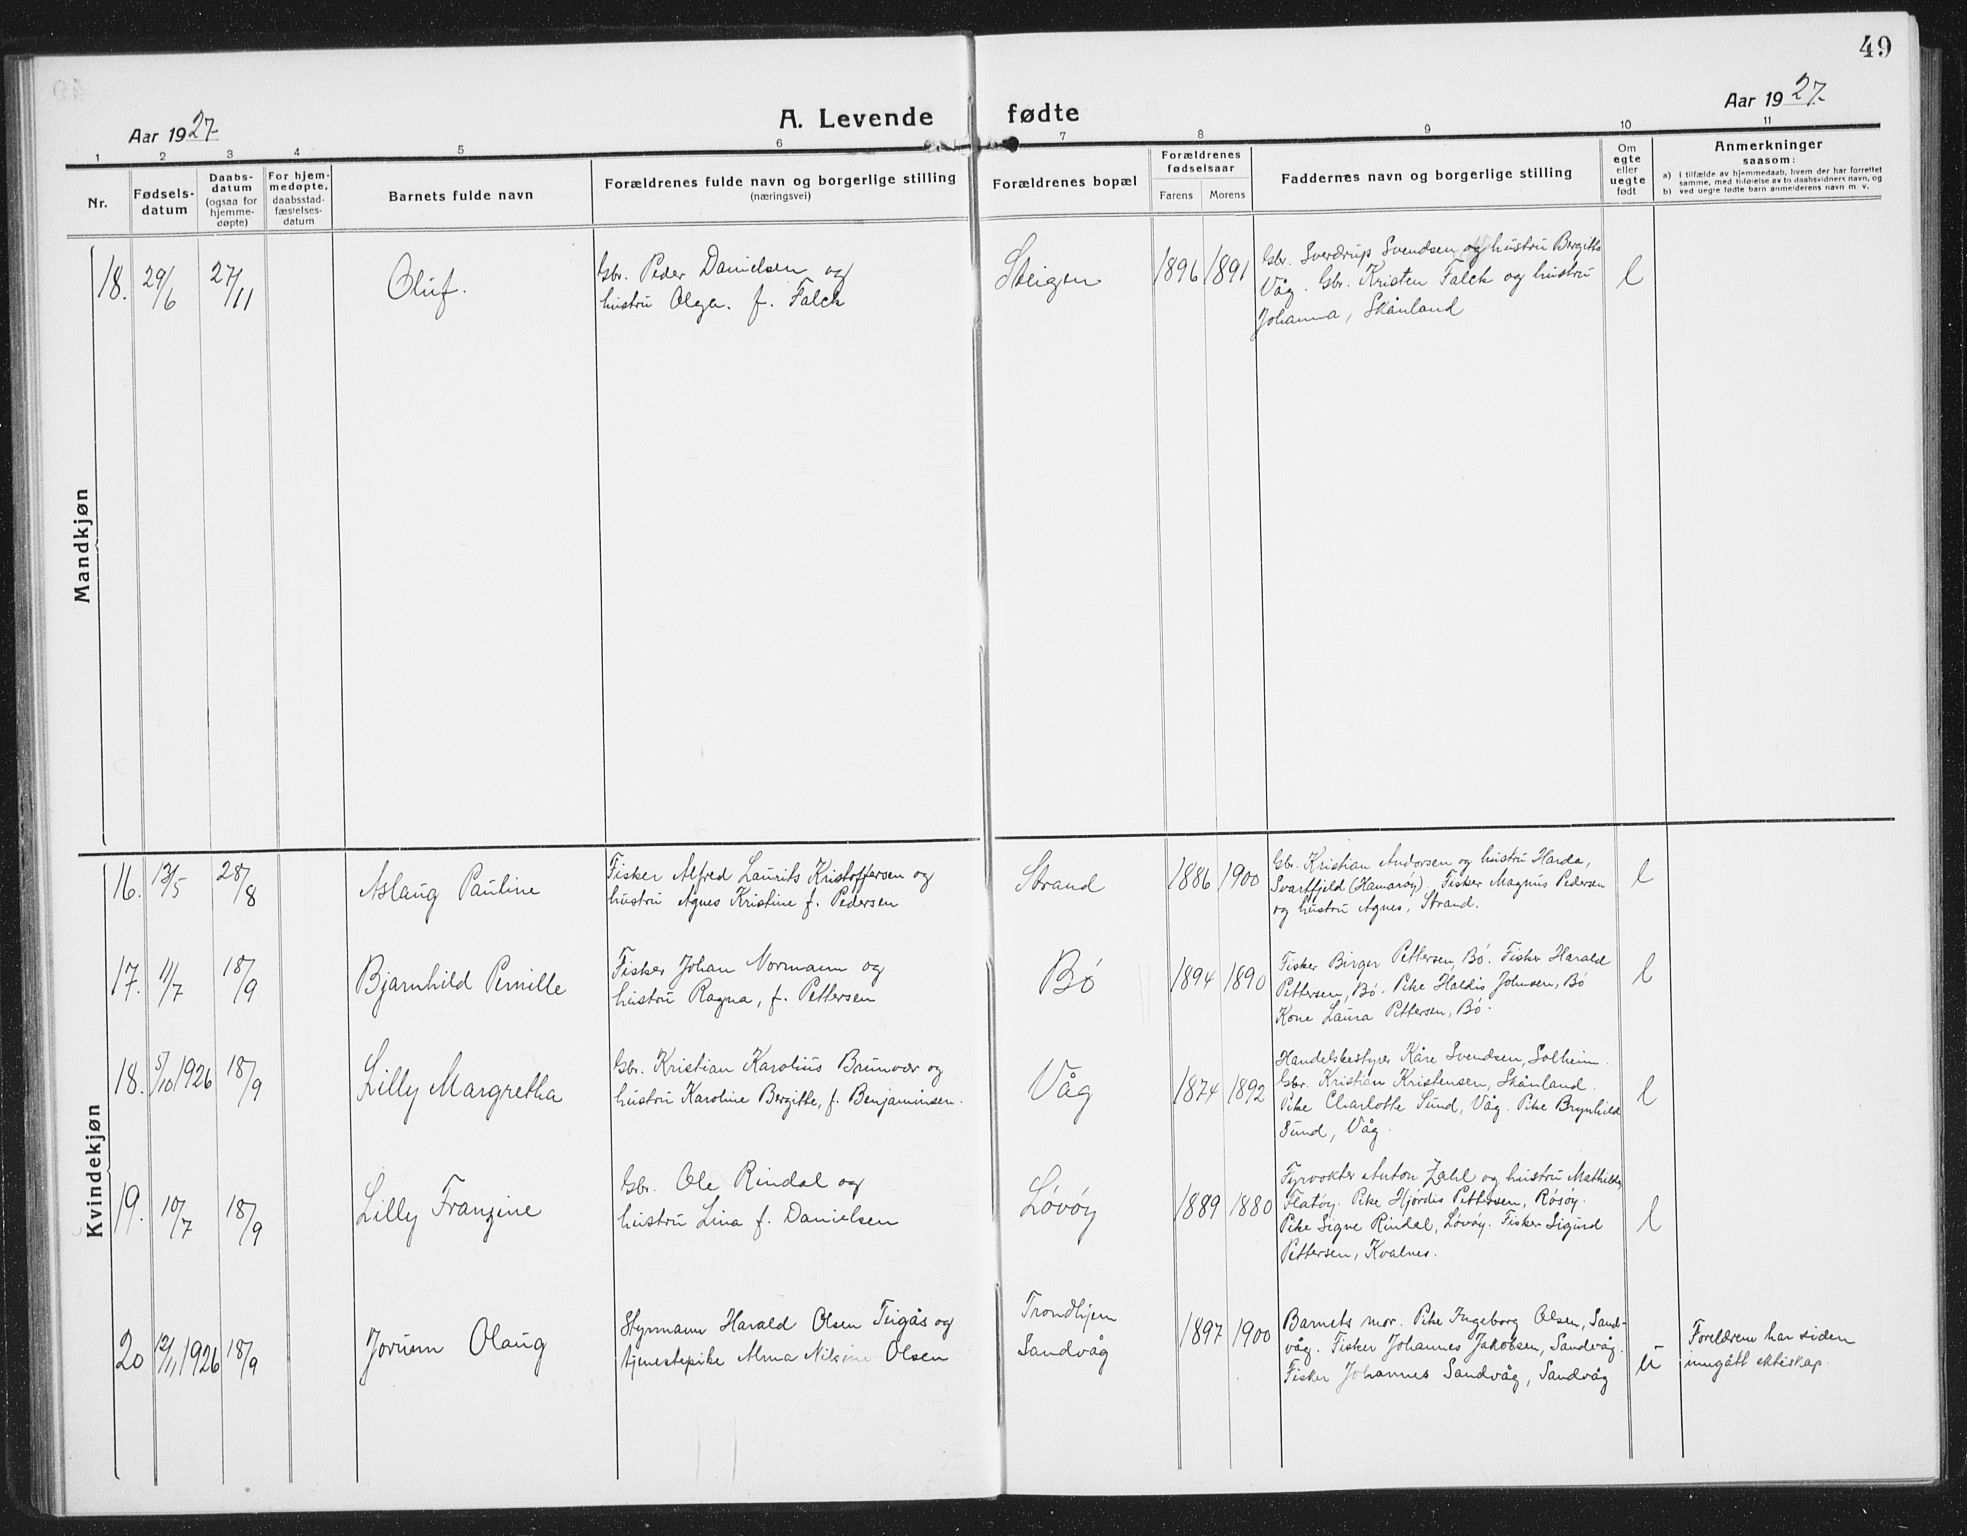 49
Aar 1927.
A. Levende fødte
Aar 1927.
1 2 3 4 5 6 7 8 9 10 11
Nr.
Fødsels-
datum
Daabs-
datum
(ogsaa for
hjemme-
døpte)
For hjem-
medøpte,
daabsstad-
fæstelses-
datum
Barnets fulde navn
Forældrenes fulde navn og borgerlige stilling
(næringsvei)
Forældrenes bopæl
Forældrenes
fødselsaar
Farens Morens
Faddernes navn og borgerlige stilling
Om
egte
eller
uegte
født
Anmerkninger
saasom:
a) i tilfælde av hjemmedaab, hvem der har forrettet
samme, med tilføielse av to daabsvidners navn, og
b) ved uegte fødte barn anmelderens navn m. v.
Mandkjøn
18. 29/6 27/11 Oluf.
Gbr. Peder Danielsen og
hustru Olga. f. Falck
Steigen 1896 1891
Gbr. Sverdrup Svendsen og hustru Bergitte
Våg. Gbr. Kristen Falck og hustru
Johanna, Skånland
l
Kvindekjøn
16. 13/5 28/8 Aslaug Pauline
Fisker Alfred Laurits Kristoffersen og
hustru Agnes Kristine f. Pedersen
Strand 1886 1900
Gbr. Kristian Andorsen og hustru Harda,
Svartfjeld (Hamarøy). Fisker Magnus Pedersen
og hustru Agnes, Strand.
l
17. 11/7 18/9 Bjarnhild Pernille
Fisker Johan Normann og
hustru Ragna, f. Pettersen
Bö 1894 1890
Fisker Birger Pettersen, Bö. Fisker Harald
Pettersen, Bö. Pike Haldis Johnsen, Bö
Kone Laura Pettersen, Bö.
l
18. 5/10 1926 18/9 Lilly Margretha
Gbr. Kristian Karolius Brunvær og
hustru Karoline Bergitte, f. Benjaminsen.
Våg 1874 1892
Handelsbestyrer Kåre Svendsen, Solheim.
Gbr. Kristian Kristensen, Skånland.
Pike Charlotte Sund, Våg. Pike Brynhild
Sund, Våg.
l
19. 10/7 18/9 Lilly Franzine
Gbr. Ole Rindal og
hustru Lina f. Danielsen
Lövöy 1889 1880
Fyrvokter Anton Zahl og hustru Mathilde,
Flatöy. Pike Hjördis Pettersen, Rösöy.
Pike Signe Rindal, Lövöy. Fisker Sigurd
Pettersen, Kvalnes.
l
20 12/11 1926 18/9 Jorunn Olaug
Styrmann Harald Olsen Teigås og
tjenestepike Alma Nilsine Olsen
Trondhjem
Sandvåg
1897 1900
Barnets mor. Pike Ingeborg Olsen, Sand-
våg. Fisker Johannes Jakobsen, Sandvåg.
Fisker Johannes Sandvåg, Sandvåg
u
Foreldrene har siden
inngått ekteskap.